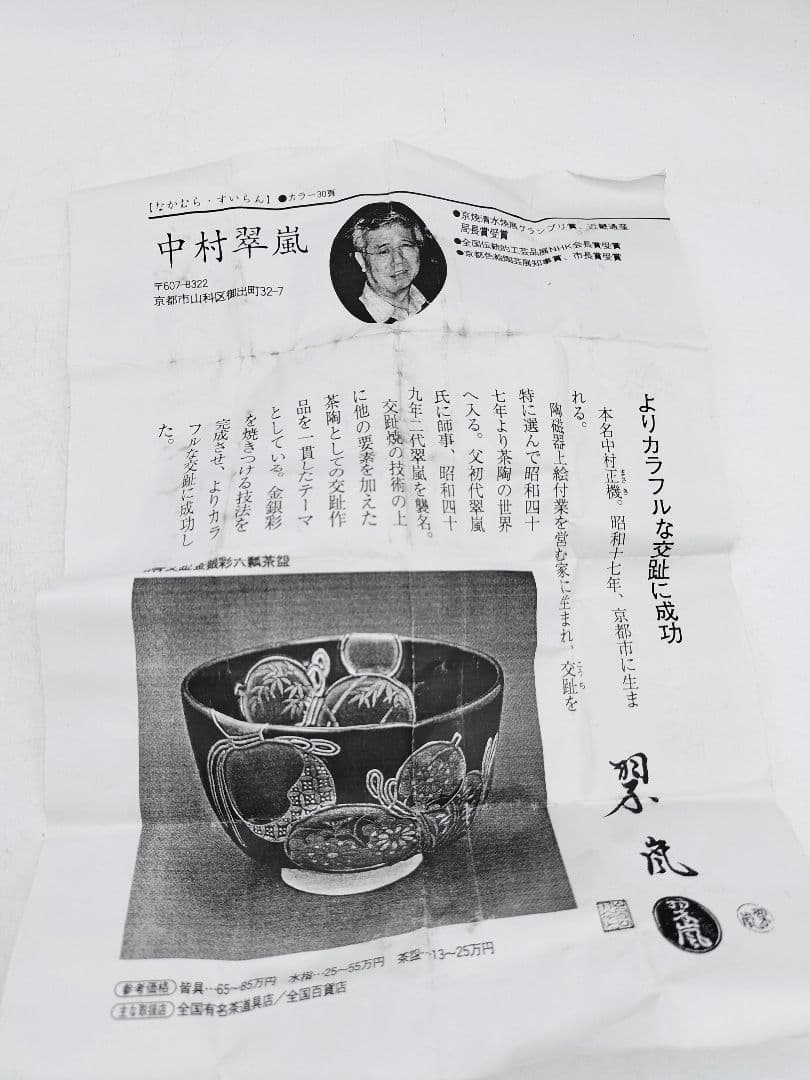 【なかむら・すいらん】●カラー30頁
中村翠嵐
〒607-8322
京都市山科区御出町32-7
●京焼清水焼展グランプリ賞、近畿通産
局長賞受賞
●全国伝統的工芸品展NHK会長賞受賞
●京都色絵陶芸展知事賞、市長賞受賞
よりカラフルな交趾に成功
本名中村正機。昭和十七年、京都市に生ま
まさき
れる。
陶磁器上絵付業を営む家に生まれ、交趾を
こうち
特に選んで昭和四十
七年より茶陶の世界
へ入る。父初代翠嵐
氏に師事、昭和四十
九年二代翠嵐を襲名。
交趾焼の技術の上
に他の要素を加えた
茶陶としての交趾作
品を一貫したテーマ
としている。金銀彩
を焼きつける技法を
完成させ、よりカラ
フルな交趾に成功し
た。
金銀彩六瓢茶盌
翠嵐
翠嵐
翠嵐
参考価格 皆具…65〜85万円 水指…25〜55万円 茶盌…13〜25万円
主な取扱店 全国有名茶道具店/全国百貨店